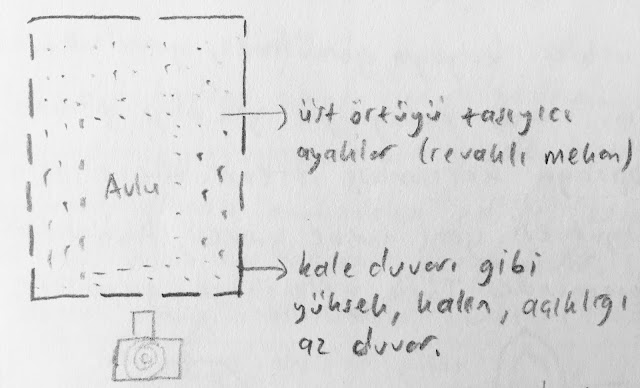 üst örtüyü taşıyıcı
ayaklar (revaklı mekan)
Avlu
kale duvarı gibi
yüksek, kalın, açıklığı
az duvar.